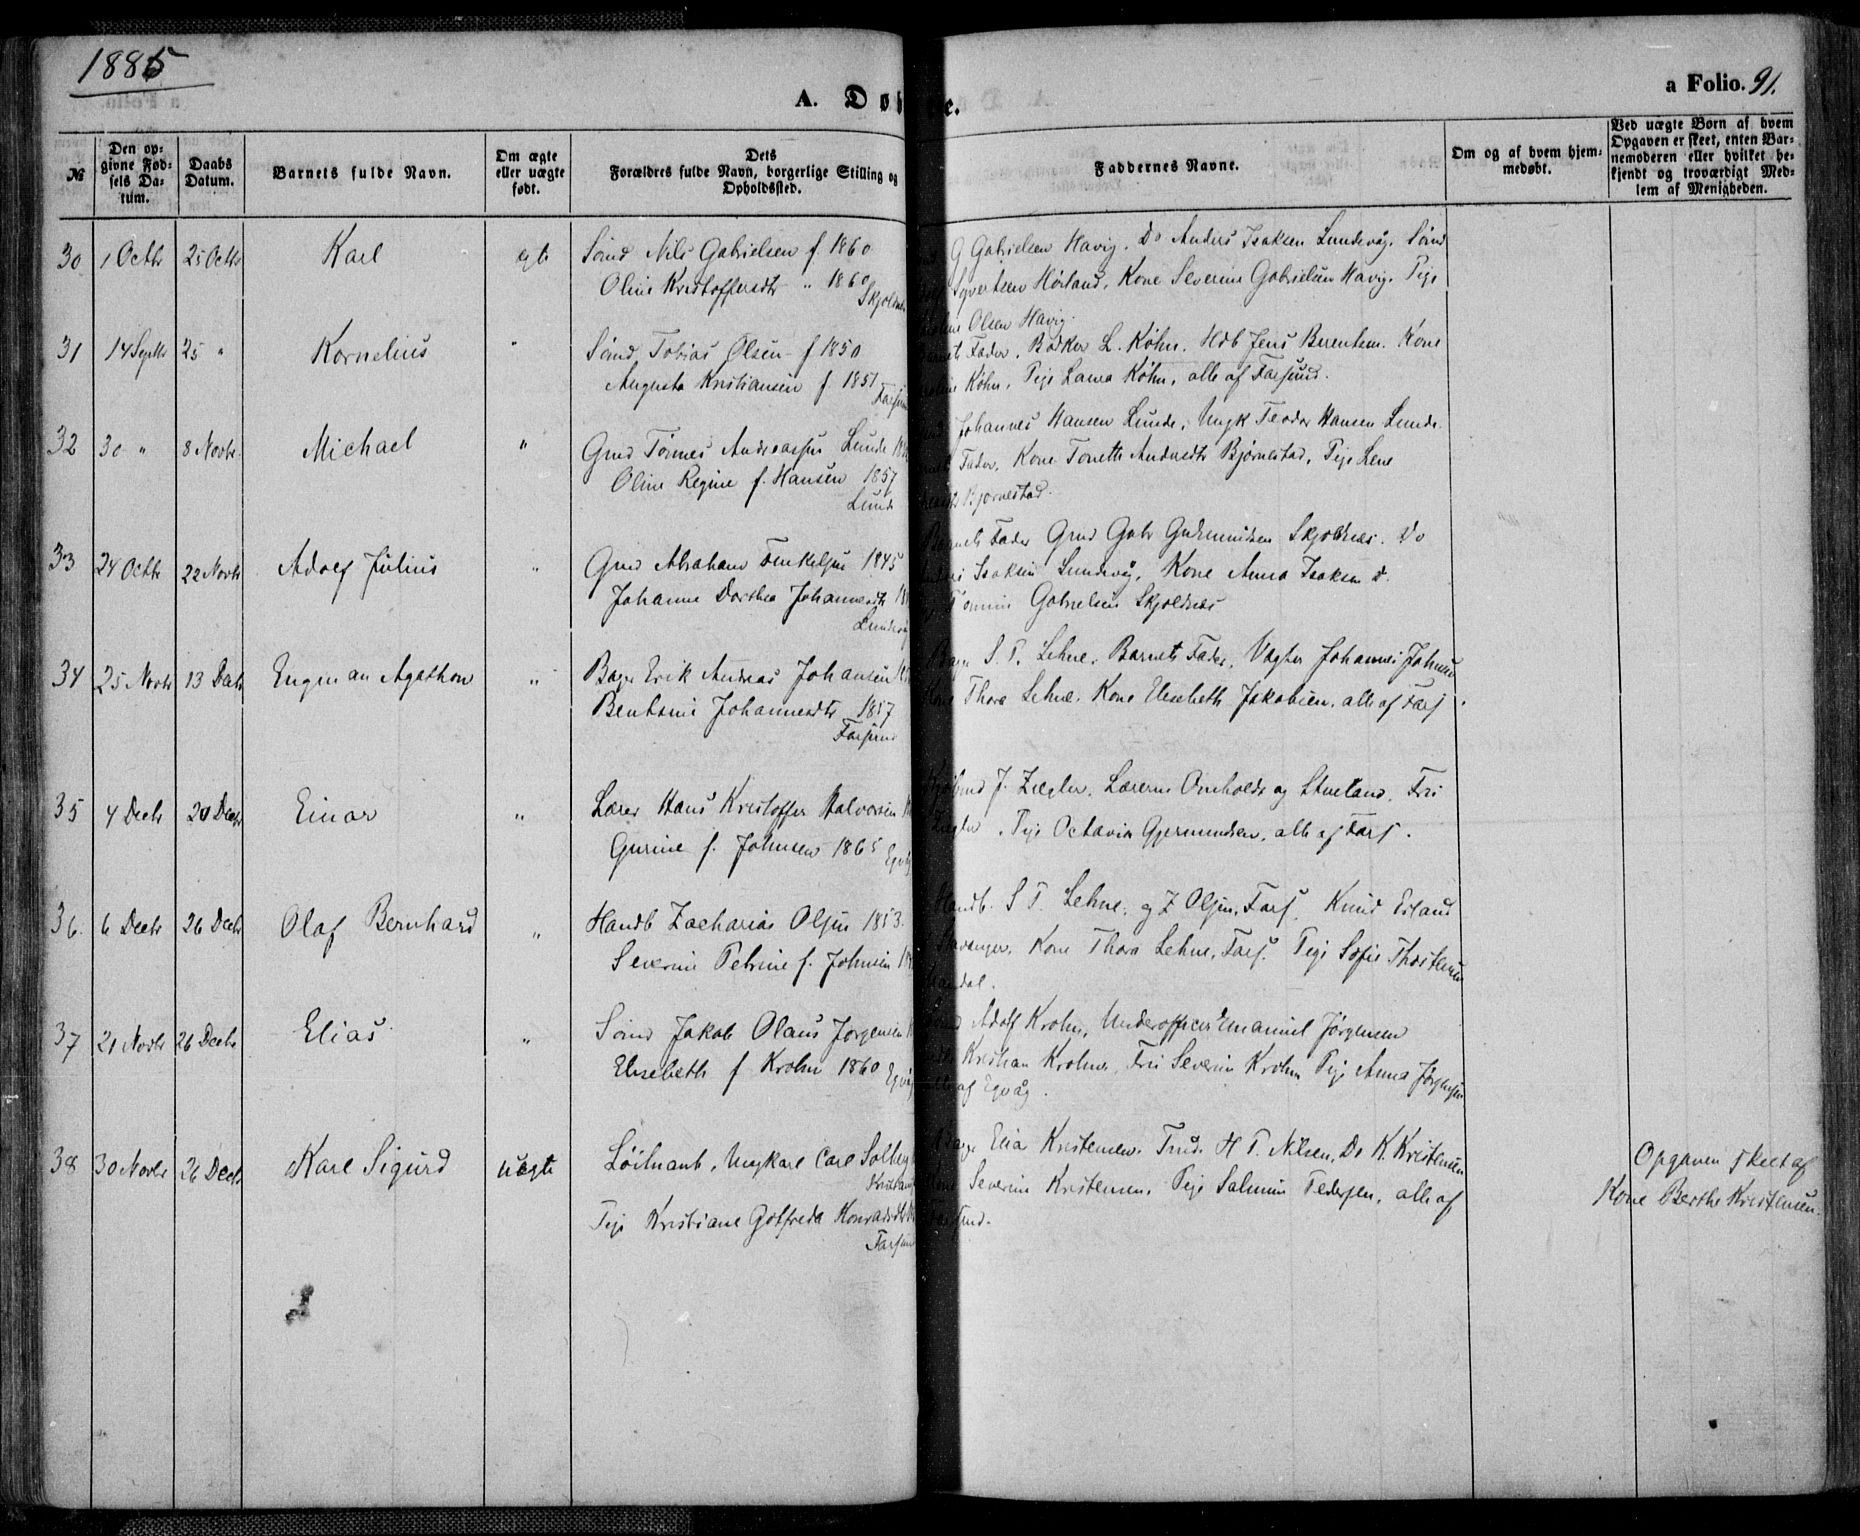 1885
A. Dø
e.
a Folio. 91.
№
Den op-
givne Fød-
sels Da-
tum.
Daabs
Datum.
Barnets fulde Navn.
Om ægte
eller uægte
født.
Dets
Forældres fulde Navn, borgerlige Stilling og
Opholdssted.
Faddernes Navne.
Om og af hvem hjem-
medøbt.
Ved uægte Børn af hvem
Opgaven er skeet, enten Bar-
nemoderen eller hvilket be-
kjendt og troværdigt Med-
lem af Menigheden.
30 1 Octbr 25 Octbr Karl egte Sømd Nils Gabrielsen f. 1860
Oline Kristoffersdtr " 1860
G Gabrielsen Havig. Do Anders Isaksen Lundevåg. Sømd
Syvertsen Hörland, Kone Severine Gabrielsen Havig. Pige
Olsen Havig.
31 14 Septbr 25 " Kornelius " Sømd Tobias Olsen f 1850
Augusta Kristiansen f. 1851
Fader, Bødker L. Köhn. Hdb Jens Berentsen. Kone
Köhn, Pige Laura Köhn, alle af Farsund.
32 30 " 8 Novbr Michael " Grd Tönnes Andreassen Lunde
Oline Regine f. Hansen 1857
Johannes Hansen Lunde, Ungk Teodor Hansen Lunde.
Fader, Kone Tonette Andersdtr Bjørnestad, Pige Lene
Bjørnestad.
33 24 Octbr 22 Novbr Adolf Julius " Grd Abraham Tenkelsen 1845
Johanne Dorthea Johannesdtr
Fader Grd Gabr Gudmundsen Skjoldnæs. Do
Isaksen Lundevåg, Kone Anna Isaksen d.
Gabrielsen Skjoldnæs
34 25 Novbr 13 Decbr Engman Agathon " Bager Erik Andreas Johansen
Bentsine Johannesdtr 1857
Farsund
S. T. Lehne. Barnets Fader, Vægter Johannes Johnsen
Kone Thora Lehne. Kone Elisabeth Jakobsen, alle af Fars.
35 4 Decbr 20 Decbr Einar " Lærer Hans Kristoffer Halvorsen
Gurine f. Johnsen 1865
J. Ziegler. Lærerne Omholdt og Stueland, Fru
Ziegler. Pige Octavia Gjermundsen, alle af Fars.
36. 6 Decbr 26 Decbr Olaf Bernhard " Handb Zacharias Olsen 1853.
Severine Petrine f. Johnsen
Handb. S T. Lehne. og Z Olsen, Fars. Knud Erland
Stavanger. Kone Thora Lehne, Fars. Pige Sofie Thorstensen
37 21 Novbr 26 Decbr Elias " Sømd Jakob Olaus Jørgensen
Elisebeth f Krohn 1860
Adolf Krohn, Underofficer Emanuel Jørgensen
Kristian Krohn, Fru Severine Krohn Pige Anna Jørgensen
af Egvåg.
38 30 Novbr 26 Decbr Karl Sigurd uegte Löitnant, Ungkarl Carl Solberg
Pige Kristiane Gotfreda Konradsdtr
Farsund
Kristensen. Frue H T. Nilsen, Do K. Kristensen
Severine Kristensen. Pige Salmine Pedersen, alle af
Opgaven skeet af
Kone Berthe Kristensen.